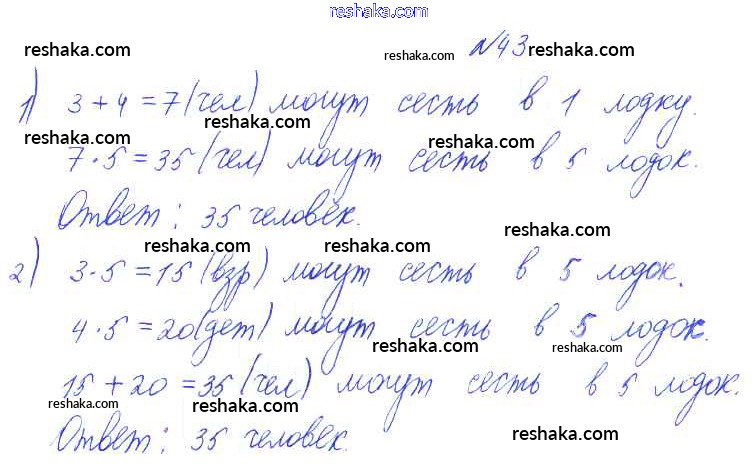 reshaka.com
reshaka.com reshaka.com №43
1) 3 + 4 = 7 (чел) могут сесть в 1 лодку.
reshaka.com reshaka.com reshaka.com
7 · 5 = 35 (чел) могут сесть в 5 лодок.
Ответ: 35 человек.
reshaka.com reshaka.com reshaka.com
2) 3 · 5 = 15 (взр) могут сесть в 5 лодок.
4 · 5 = 20 (дет) могут сесть в 5 лодок.
reshaka.com reshaka.com
15 + 20 = 35 (чел) могут сесть в 5 лодок.
reshaka.com reshaka.com reshaka.com
Ответ: 35 человек.
reshaka.com